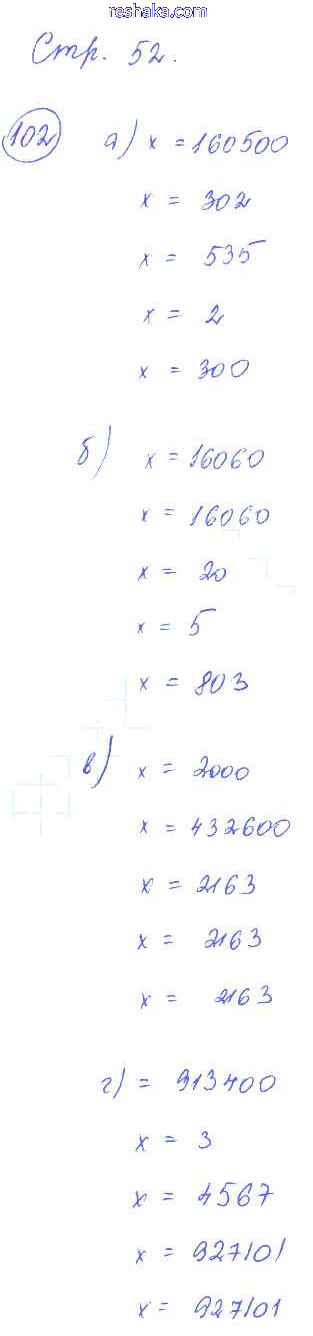 reshaka.com
Стр. 52.
102 а) x = 160500
x = 302
x = 535
x = 2
x = 300
б) x = 16060
x = 16060
x = 20
x = 5
x = 803
в) x = 2000
x = 432600
x = 2163
x = 2163
x = 2163
г) = 913400
x = 3
x = 4567
x = 927101
x = 927101